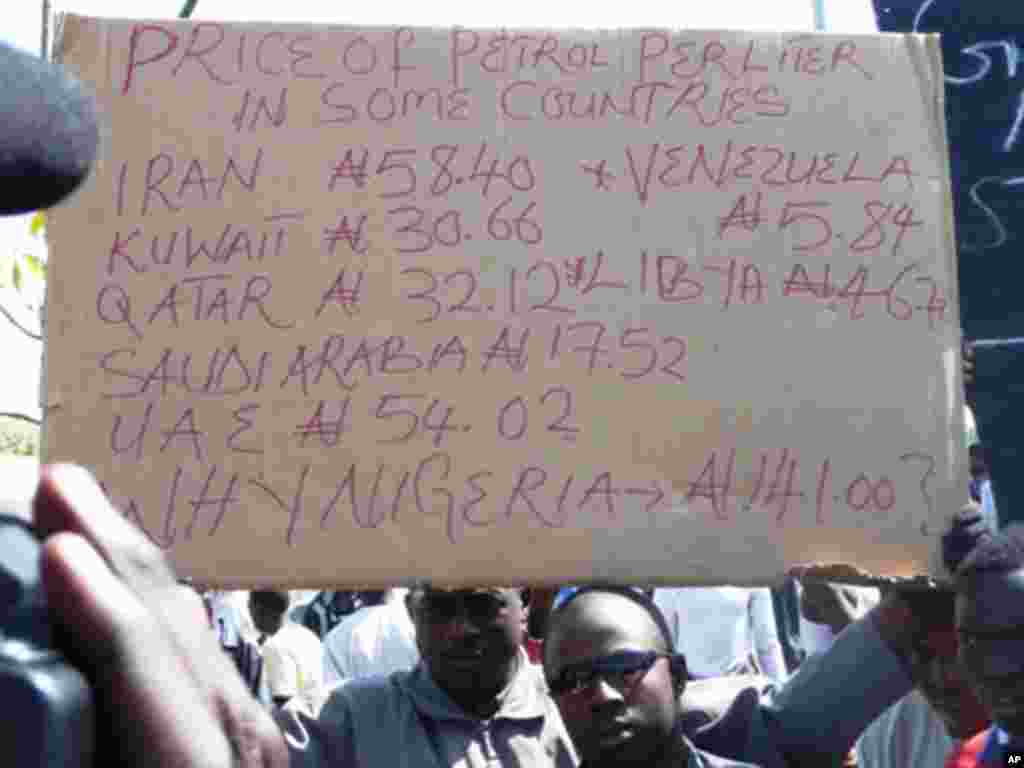 PRICE OF PETROL PER LITER
IN SOME COUNTRIES
IRAN ₦58.40 * VENEZUELA
KUWAIT ₦ 30.66 ₦ 5.84
QATAR ₦ 32.12 * LIBYA ₦
SAUDI ARABIA ₦ 17.52
UAE ₦ 54.02
WHY NIGERIA → ₦ 141.00?
AP